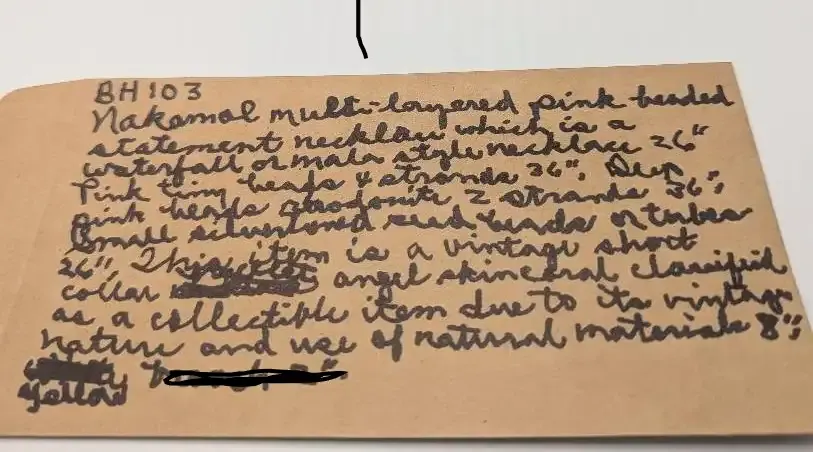 BH103
Nakamol multi-layered pink beaded
statement necklace which is a
waterfall or mala style necklace 26"
Pink tiny beads 4 strands 36", Deep
pink beads rhodonite 2 strands 36",
Small silvertoned seed beads or tubes
26", This item is a vintage short
collar angel skin coral classified
as a collectible item due to its vintage
nature and use of natural materials 8",
yellow